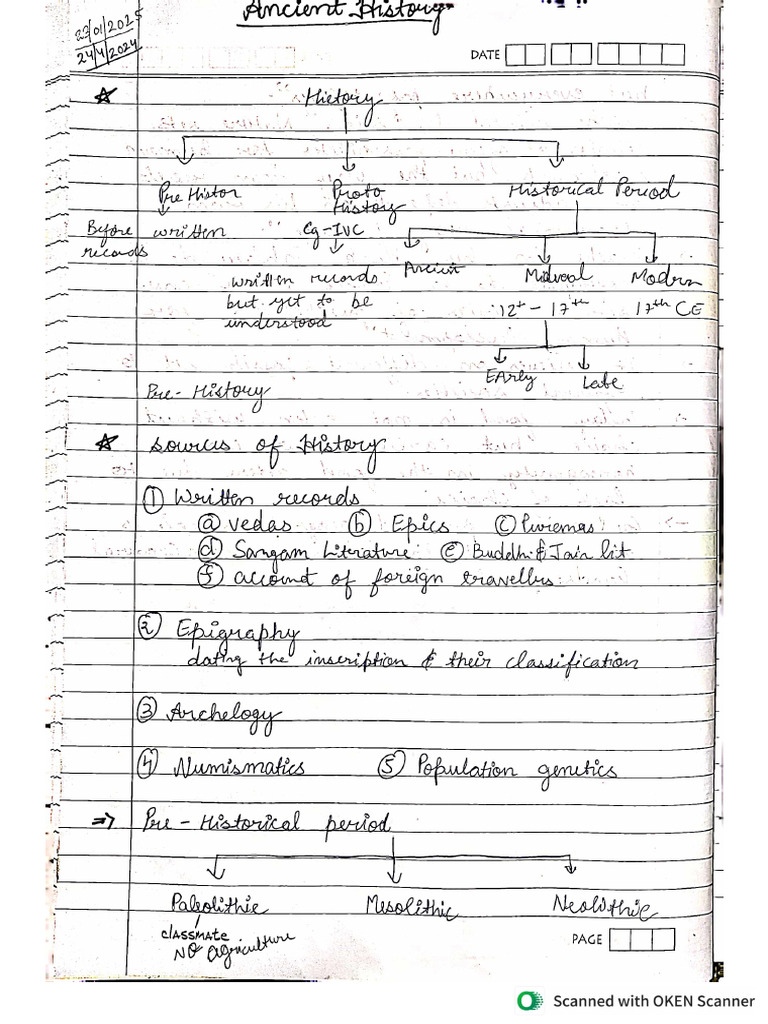 Ancient History
23/01/2025
24/4/2024
DATE
☆ History
Pre Histor Proto History Historical Period
Before written records
eg-IVC
written records but yet to be understood
Ancient Midveal Modrn
12th - 17th 17th CE
EArly Late
Pre-History
☆ sources of History
① Written records
ⓐ vedas ⓑ Epics ⓒ Puremas
ⓓ Sangam Literature ⓔ Buddhi & Jain lit
ⓕ account of foreign travellers
② Epigraphy
dating the inscription & their classification
③ Archelogy
④ Numismatics ⑤ Population genetics
⇒ Pre-Historical period
Paleolithic Mesolithic Neolithic
classmate
NO agriculture
PAGE
Scanned with OKEN Scanner